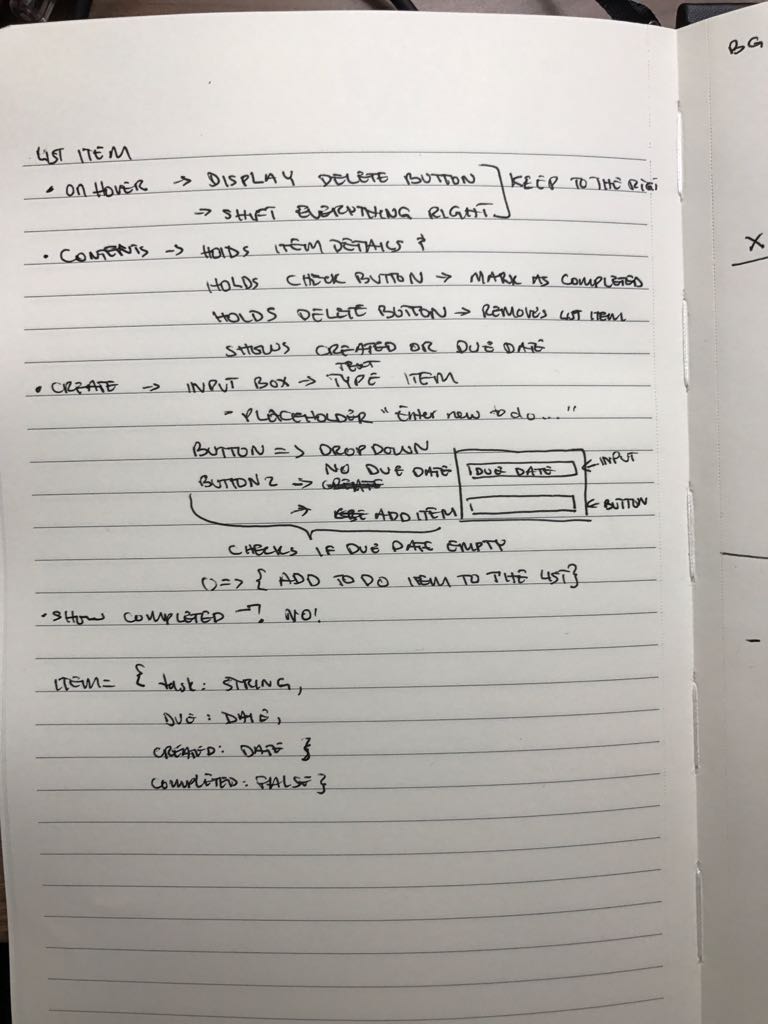 LIST ITEM
• ON HOVER → DISPLAY DELETE BUTTON
→ SHIFT EVERYTHING RIGHT
KEEP TO THE
• CONTENTS → HOLDS ITEM DETAILS
HOLDS CHECK BUTTON → MARK AS COMPLETED
HOLDS DELETE BUTTON → REMOVES LIST ITEM
SHOWS CREATED OR DUE DATE
TEXT
• CREATE → INPUT BOX → TYPE ITEM
- PLACEHOLDER "Enter new to do..."
BUTTON => DROP DOWN
NO DUE DATE
BUTTON 2 → CREATE
→ ADD ITEM
DUE DATE
← INPUT
← BUTTON
CHECKS IF DUE DATE EMPTY
() => { ADD TO DO ITEM TO THE LIST}
• SHOW COMPLETED →? NO!
ITEM = { task: STRING,
DUE: DATE,
CREATED: DATE }
COMPLETED: FALSE }
BG
X
-